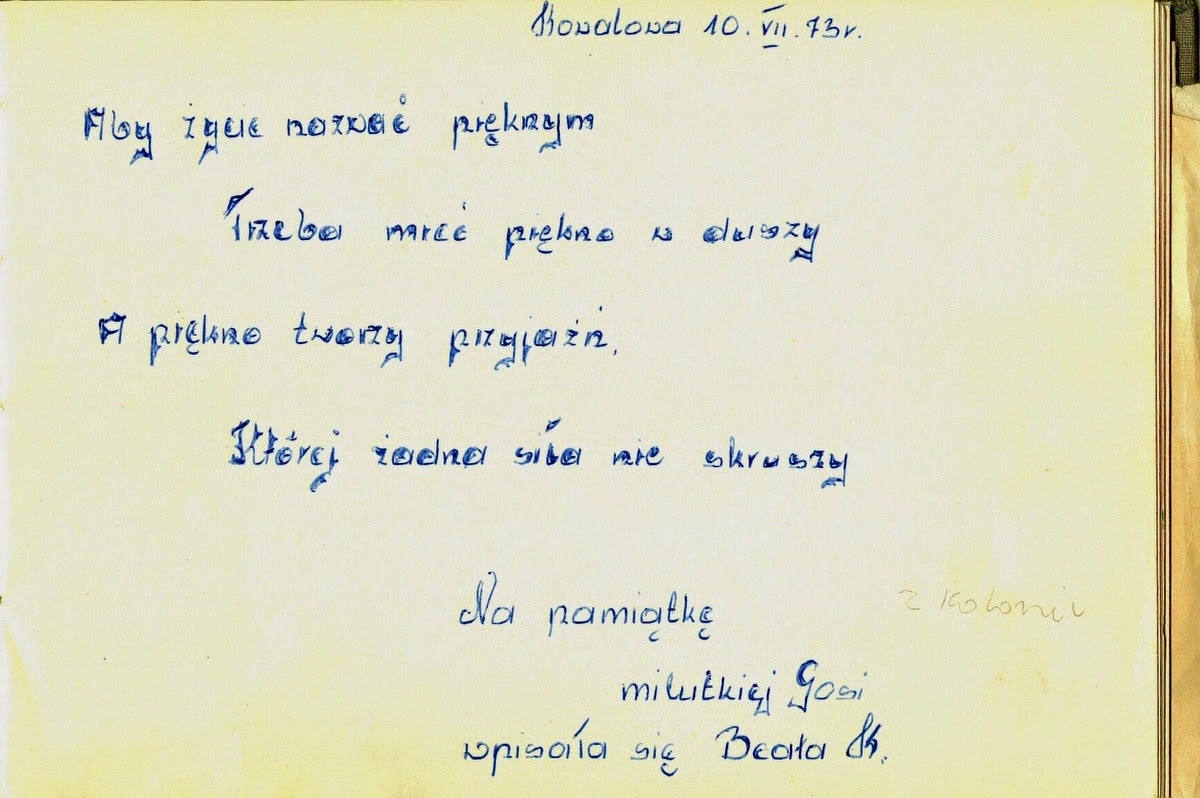 Kowalowa 10. VII. 73r.
Aby życie nazwać pięknym
Trzeba mieć piękno w duszy
A piękno tworzy przyjaźń,
Której żadna siła nie skruszy
Na pamiątkę
z kolonii
milutkiej Gosi
wpisała się Beata K.